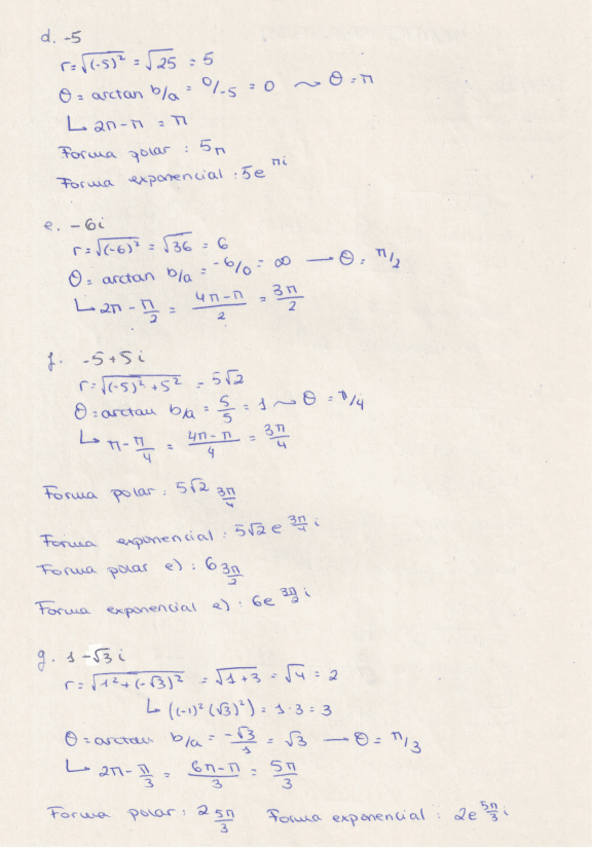 d. -5
r = √(-5)² = √25 = 5
θ = arctan b/a = 0/-5 = 0 ~ θ = π
↳ 2π - π = π
Forma polar : 5π
Forma exponencial : 5e^πi
e. -6i
r = √(-6)² = √36 = 6
θ = arctan b/a = -6/0 = ∞ → θ = π/2
↳ 2π - π/2 = (4π-π)/2 = 3π/2
f. -5+5i
r = √((-5)²+5²) = 5√2
θ = arctan b/a = 5/5 = 1 ~ θ = π/4
↳ π - π/4 = (4π-π)/4 = 3π/4
Forma polar : 5√2 3π/4
Forma exponencial : 5√2 e^(3π/4 i)
Forma polar e) : 6 3π/2
Forma exponencial e) : 6e^(3π/2 i)
g. 1-√3 i
r = √(1²+(-√3)²) = √(1+3) = √4 = 2
↳ ((-1)² (√3)²) = 1·3 = 3
θ = arctan b/a = -√3/1 = √3 → θ = π/3
↳ 2π - π/3 = (6π-π)/3 = 5π/3
Forma polar : 2 5π/3 Forma exponencial : 2e^(5π/3 i)